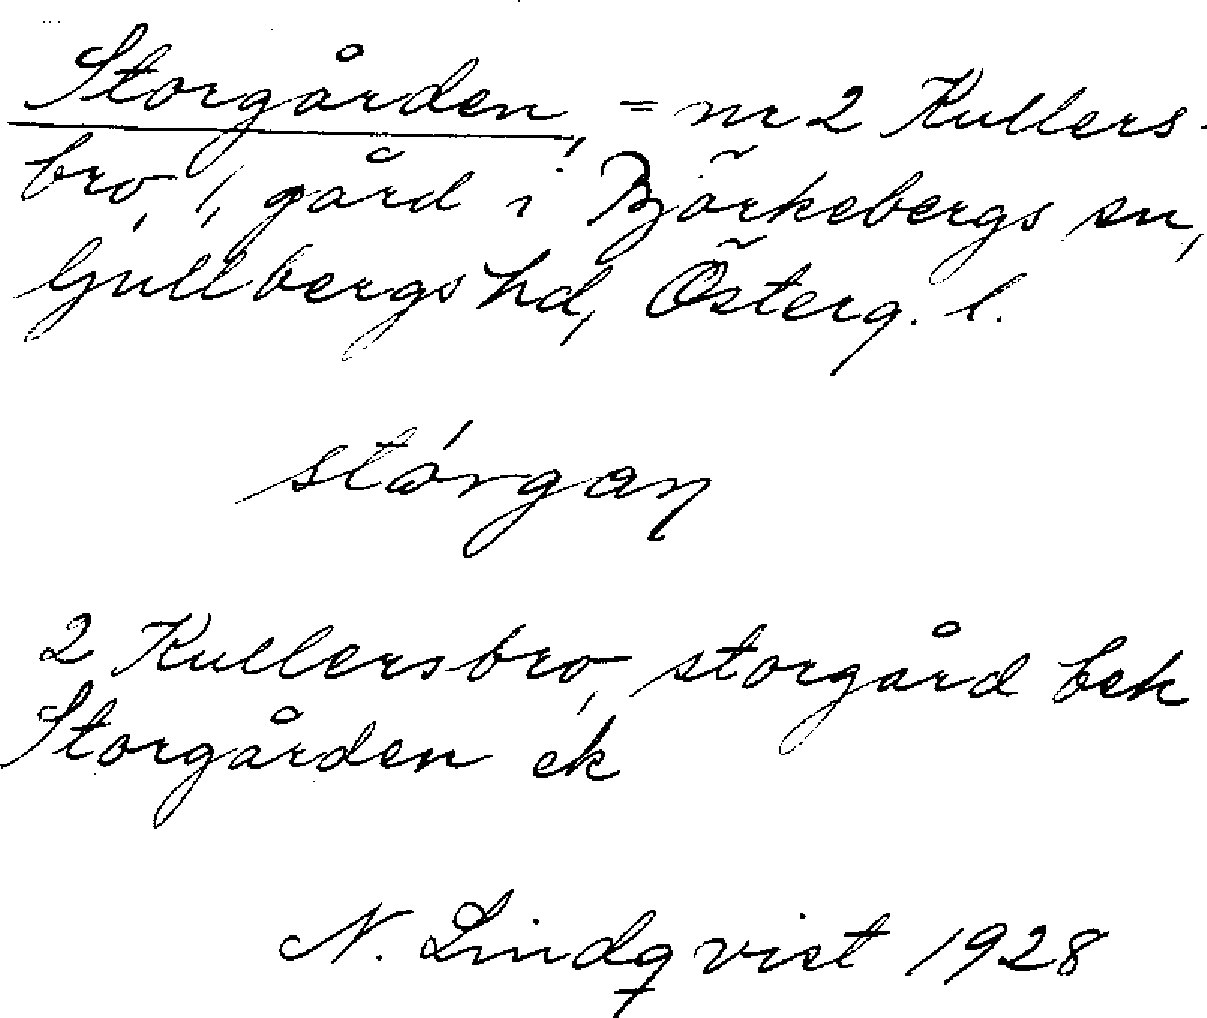 Storgården, = nr 2 Kullers-
bro, 1, gård i Björkebergs sn,
Gullbergs hd, Österg. l.
stórgaɳ
2 Kullersbro, storgård bek
Storgården ek
N. Lindqvist 1928